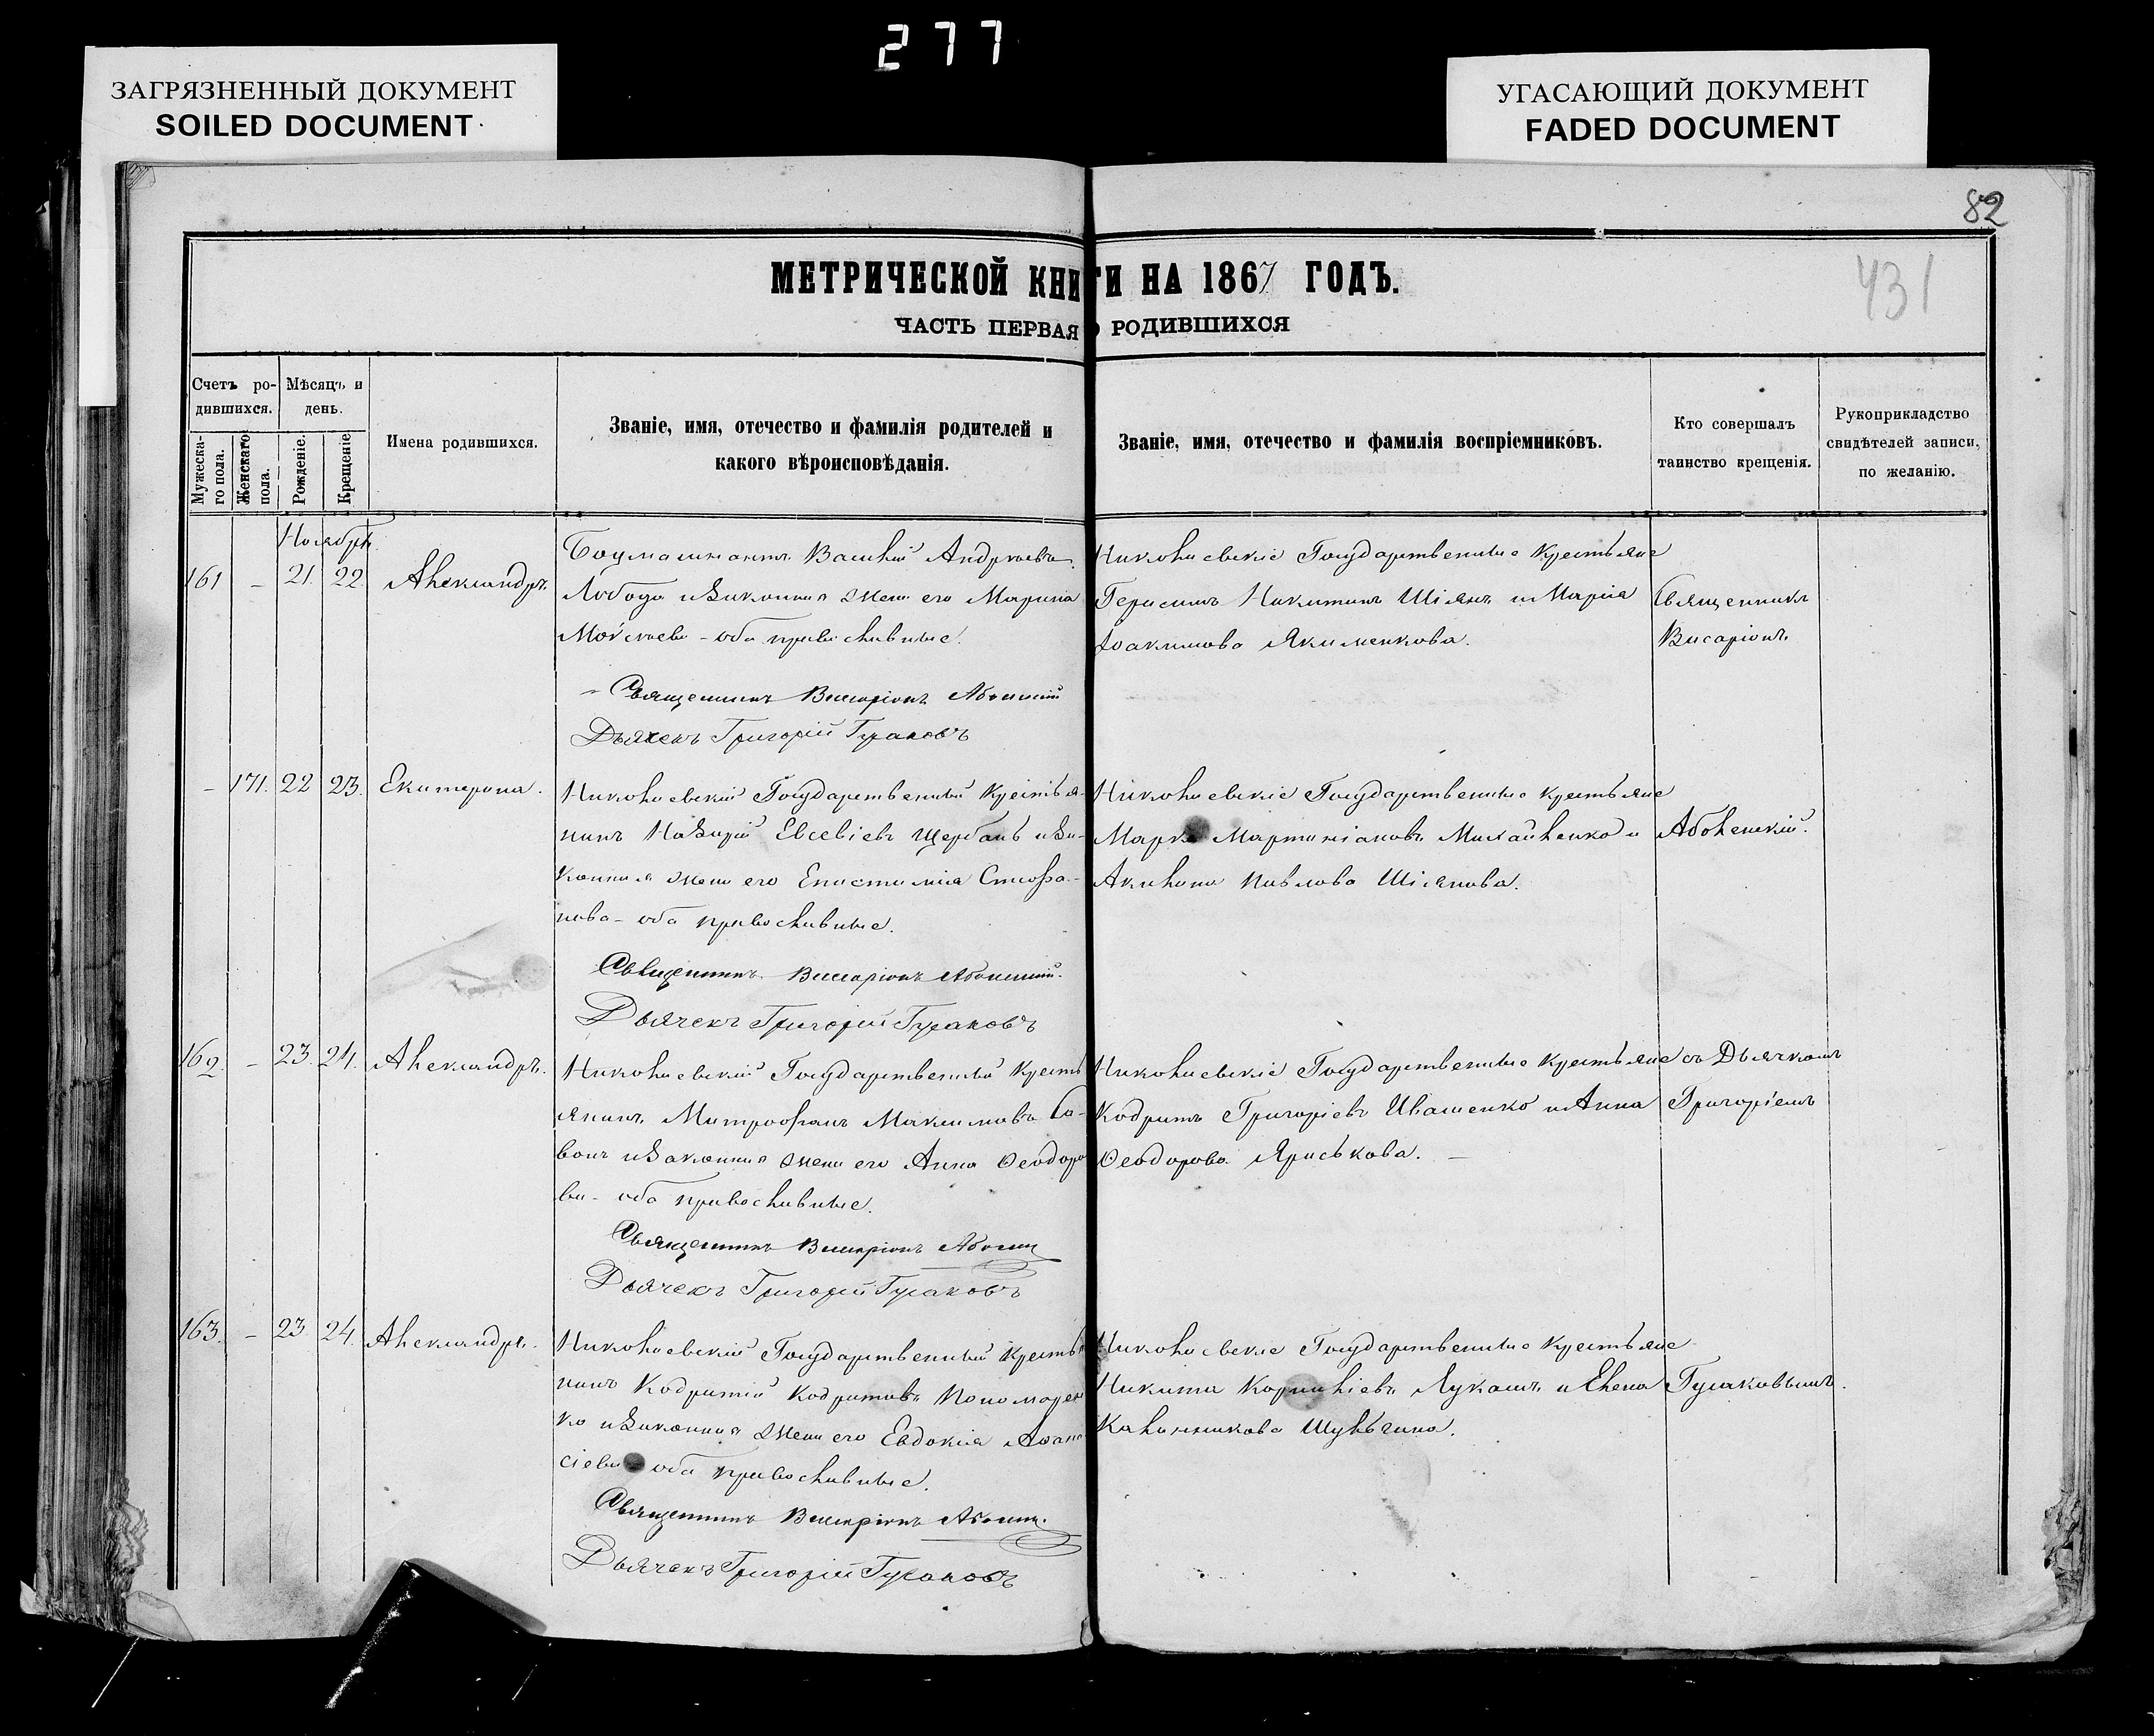 277
ЗАГРЯЗНЕННЫЙ ДОКУМЕНТ
SOILED DOCUMENT
УГАСАЮЩИЙ ДОКУМЕНТ
FADED DOCUMENT
82
431
МЕТРИЧЕСКОЙ КНИГИ НА 1867 ГОДЪ.
ЧАСТЬ ПЕРВАЯ О РОДИВШИХСЯ
Счетъ ро-
дившихся.
Мужеска-
го пола.
Женскаго
пола.
Мѣсяцъ и
день.
Рожденіе.
Крещеніе
Имена родившихся.
Званіе, имя, отечество и фамилія родителей и
какого вѣроисповѣданія.
Званіе, имя, отечество и фамилія воспріемниковъ.
Кто совершалъ
таинство крещенія.
Рукоприкладство
свидѣтелей записи,
по желанію.
Ноября
161 - 21. 22. Александръ.
Василій Андреевъ
Лобода и законная жена его Марина
Моѵсеева - оба православные.
Священникъ Виссаріонъ
Дьячекъ Григорій Гусаковъ
Николаевскіе Государственные крестьяне
Герасимъ Никитинъ Шіянъ и Марія
Іоакимова Якименкова.
Священникъ
Висаріонъ
- 171. 22 23. Екатерина.
Николаевскій Государственный Крестья-
нинъ Назарій Евсевіевъ Щербакъ и за-
конная жена его Епистимія Стефа-
нова - оба православные.
Священникъ Виссаріонъ
Дьячекъ Григорій Гусаковъ
Николаевскіе Государственные крестьяне
Марко Мартиніановъ Михайленко и
Акилина Павлова Шіянова.
Аболенскій.
162. - 23. 24. Александръ.
Николаевскій Государственный Кресть
янинъ Митрофанъ Максимовъ Са-
вонъ и законная жена его Анна Ѳеодоро
ва - оба православные.
Священникъ Виссаріонъ
Дьячекъ Григорій Гусаковъ
Николаевскіе Государственные крестьяне
Кодратъ Григоріевъ Ивашенко и Анна
Ѳеодорова Яриськова. -
съ Дьячкомъ
Григоріемъ
163. - 23. 24. Александръ.
Николаевскій Государственный Кресть
нинъ Кодратій Кодратовъ Пономарен
ко и законная жена его Евдокія Аѳана
сіева - оба православные.
Священникъ Виссаріонъ
Дьячекъ Григорій Гусаковъ
Николаевскіе Государственные крестьяне
Никита Корниліевъ Лукашъ и Елена
Калинникова Шульгина.
Гусаковымъ.